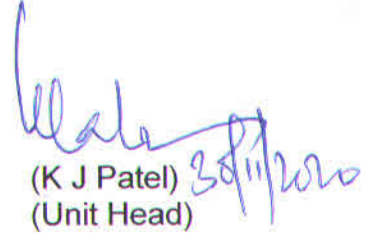 (K J Patel) 30/11/2020
(Unit Head)